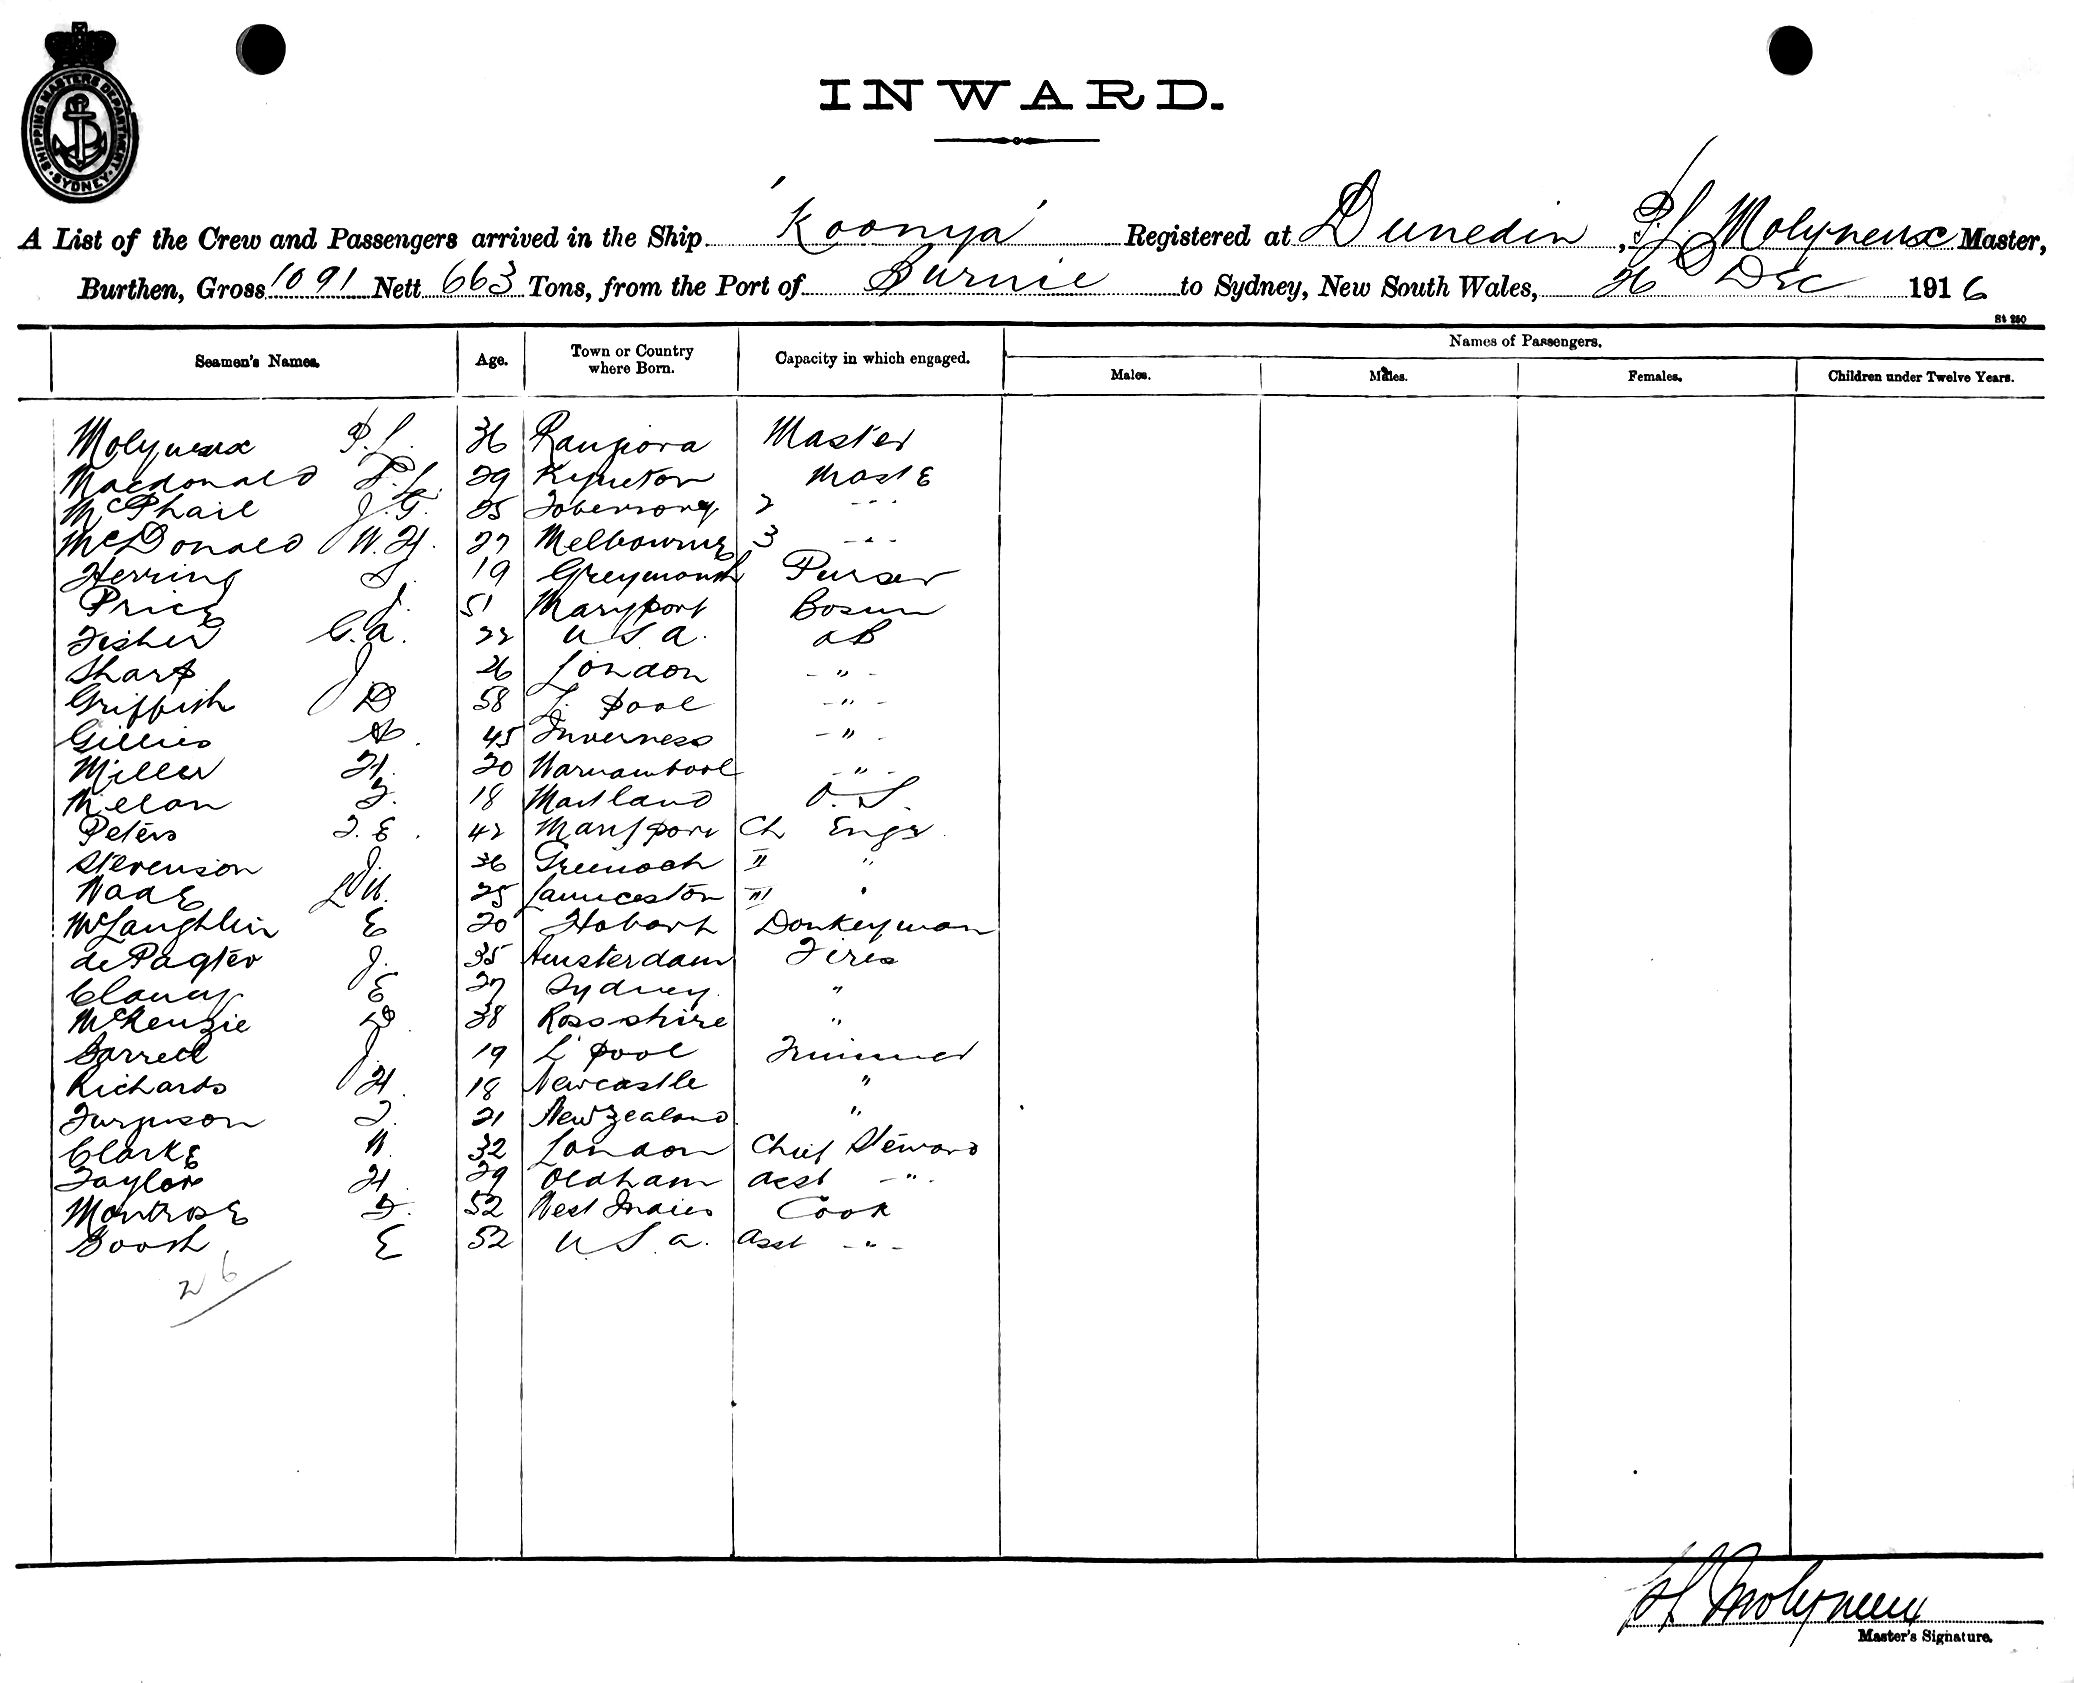 SHIPPING MASTERS DEPARTMENT SYDNEY
INWARD.
A List of the Crew and Passengers arrived in the Ship 'Koonya' Registered at Dunedin, P.L. Molyneux Master,
Burthen, Gross 1091 Nett 663 Tons, from the Port of Burnie to Sydney, New South Wales, 26 Dec 1916
St 250
Seamen's Names. Age. Town or Country where Born. Capacity in which engaged. Names of Passengers.
Males. Males. Females. Children under Twelve Years.
Molyneux P.L. 36 Rangiora Master
Macdonald 29 Kyneton Mate
McPhail J.G. 25 2 - - -
McDonald W.H. 27 Melbourne 3 - " -
Herring S. 19 Greymouth Purser
Price J. 51 Maryport Bosun
Fisher C.A. 22 U S A. AB
Sharp J 26 London - " -
Griffith D 58 L. pool - " -
Gillies A. 45 Inverness - " -
Miller H. 20 Warnambool - " -
Melan F. 18 Maitland O.S.
Peters T.E. 42 Maryport Ch Engr.
Stevenson J. 36 Greenock II "
Wade 25 Launceston III "
McLaughlin E 20 Hobart Donkeyman
de Pagter J. 35 Amsterdam Fires
Clancy E 27 Sydney "
McKenzie D. 38 Rossshire "
Garrett J. 19 L'pool Trimmer
Richards H. 18 Newcastle "
Furguson T. 21 New Zealand "
Clarke W. 32 London Chief Steward
Taylor H. 29 Oldham Asst - " -
Montrose F. 52 West Indies Cook
Booth E 52 U.S.A. Asst - " -
26
P L Molyneux
Master's Signature.